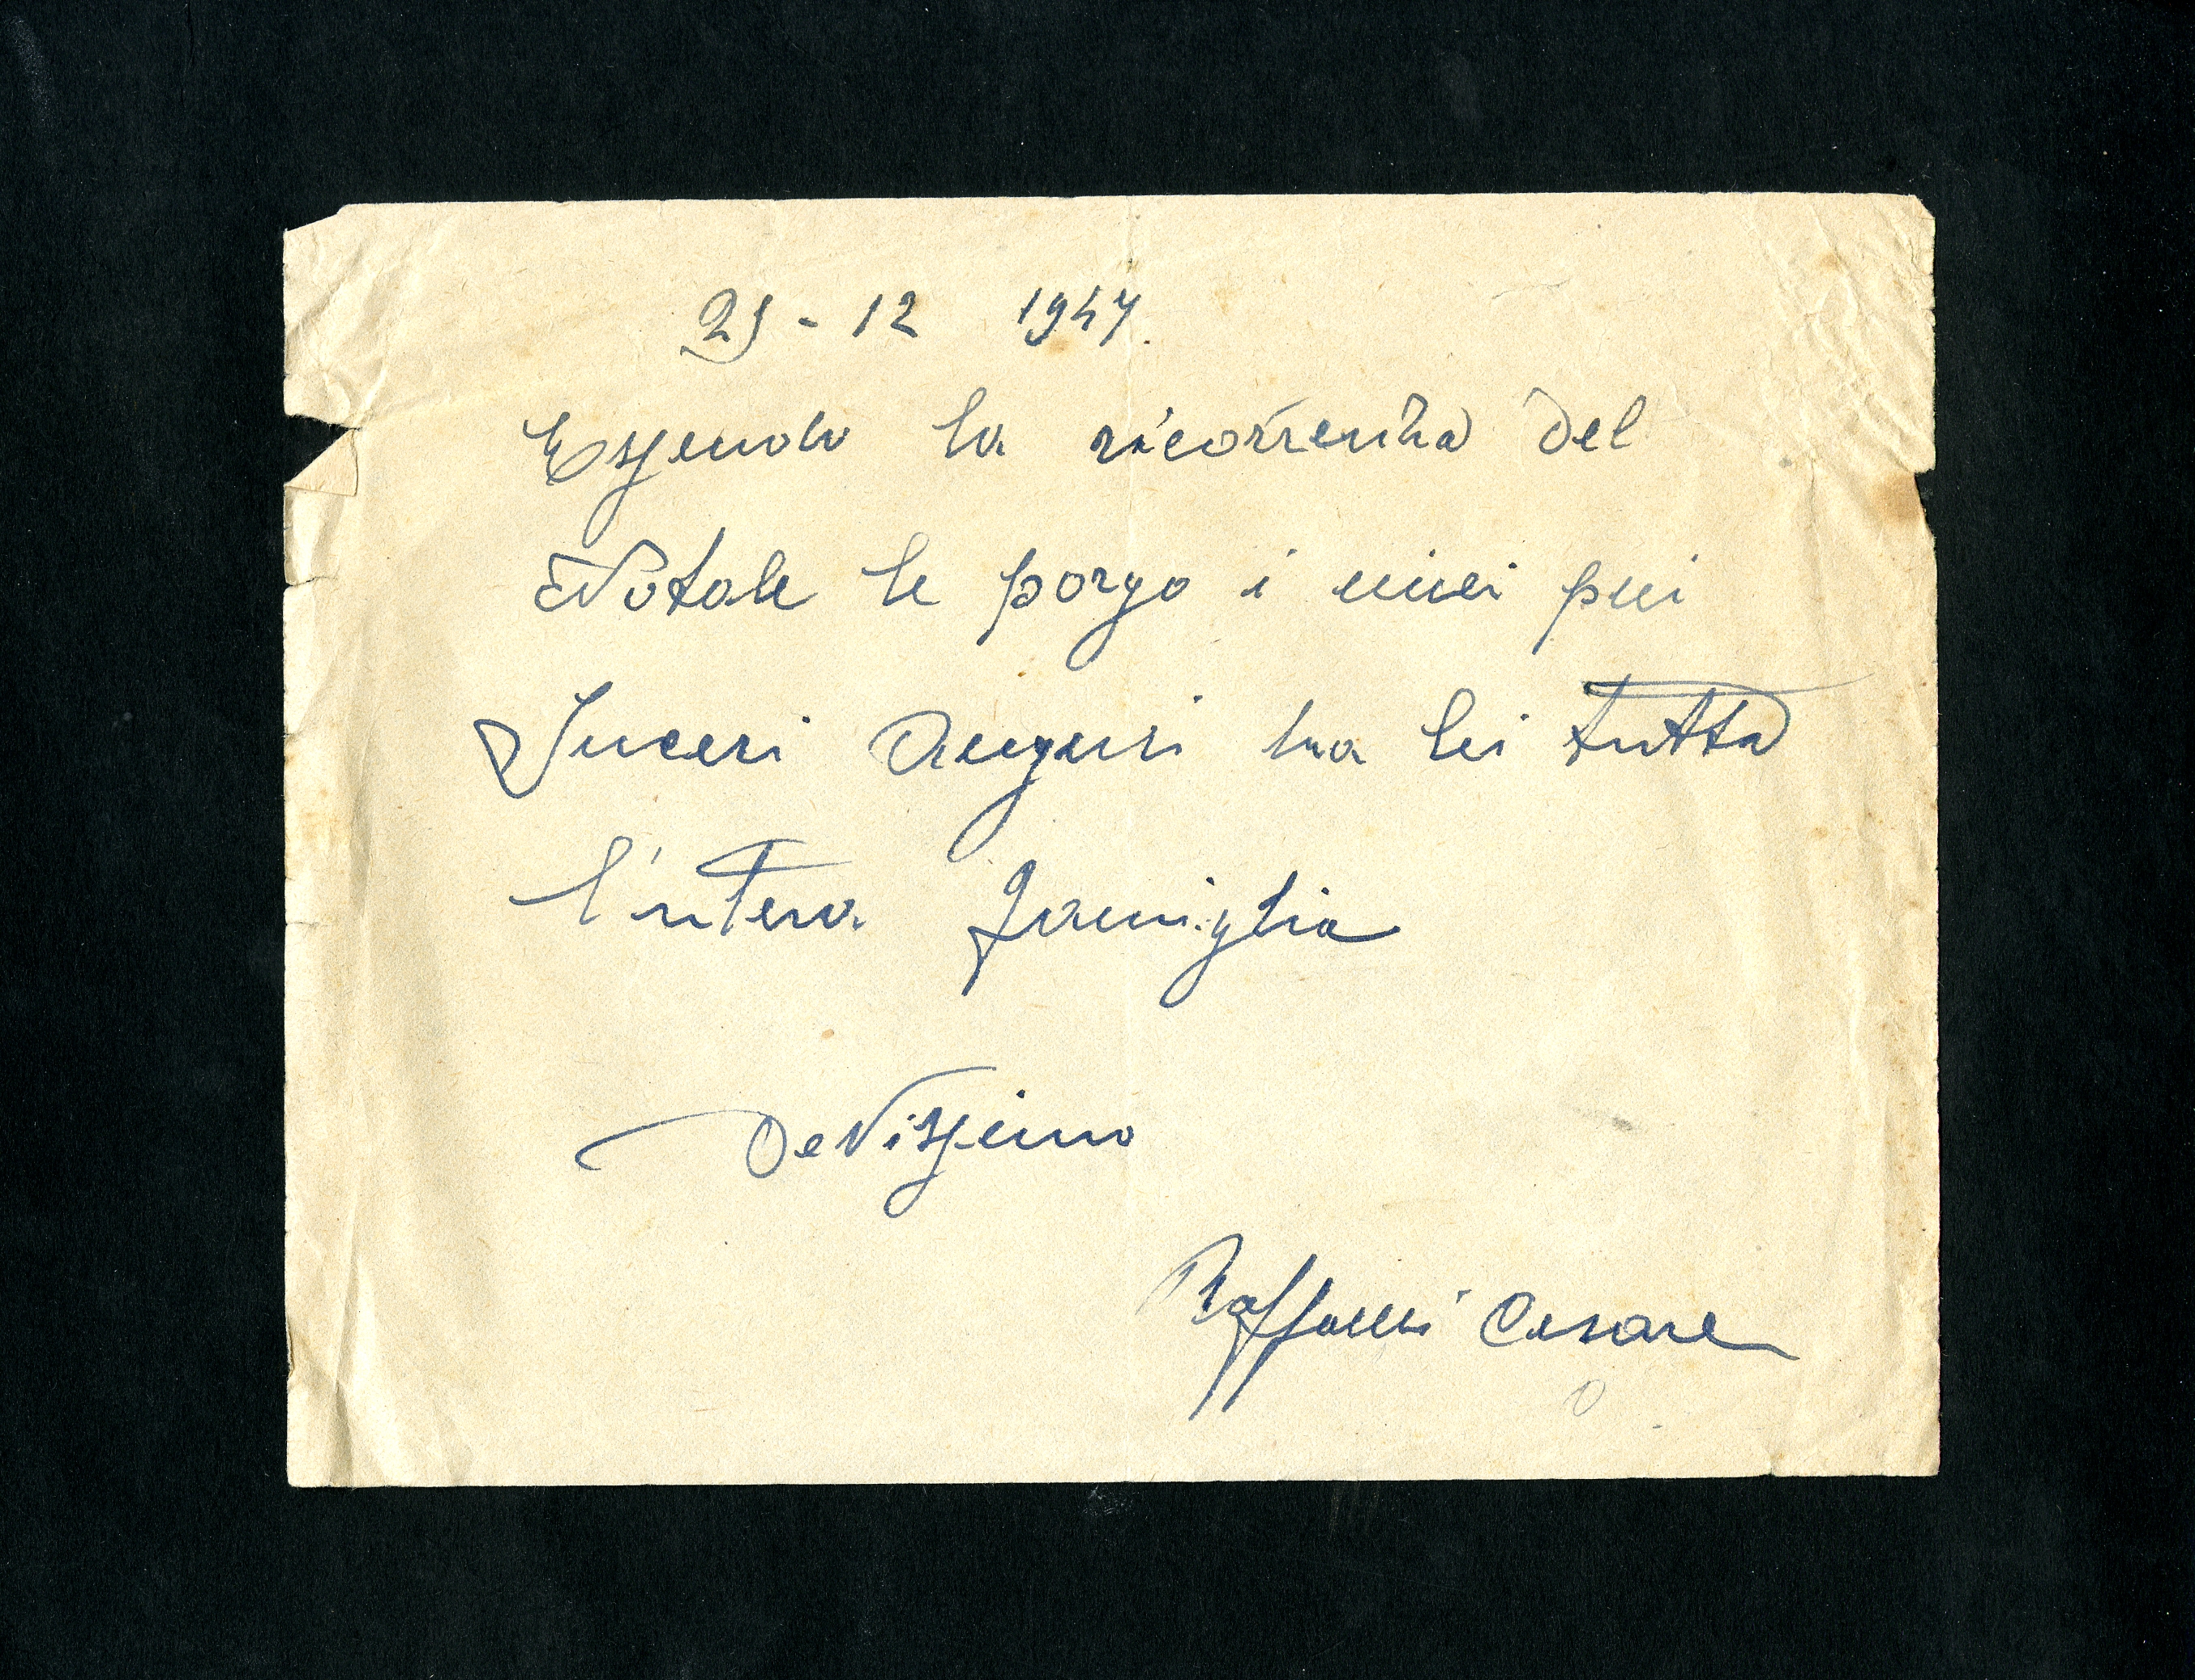 25-12 1947.
Essendo la ricorrenza del
Natale le porgo i miei più
Sinceri Auguri ha lei tutta
l'intera famiglia
Devissimo
Raffaelli Cesare